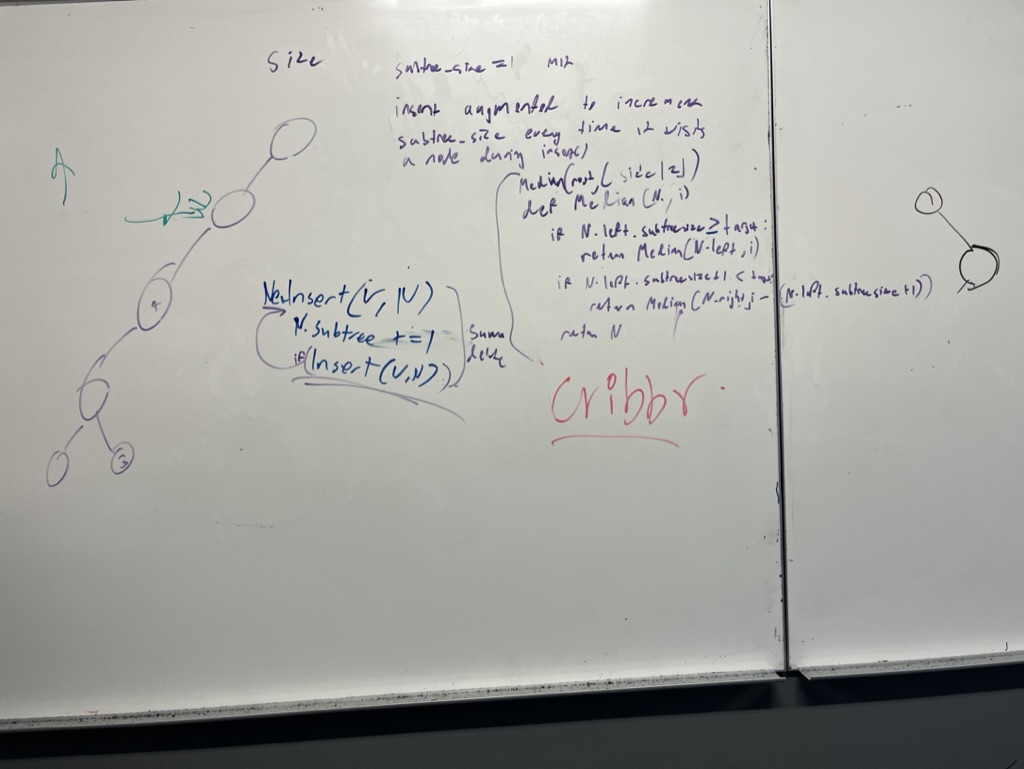 Size
subtree_size = 1 init
insert augmented to increment
subtree_size every time it visits
a node during insert()
Median(root, (size/2))
def Median(N, i)
if N.left.subtreesize ≥ target:
return Median(N.left, i)
if N.left.subtreesize+1 < target
return Median(N.right, i - (N.left.subtreesize+1))
return N
NewInsert(V, N)
N.subtree += 1
if(Insert(V,N))
Same
delete
Cribbr
1